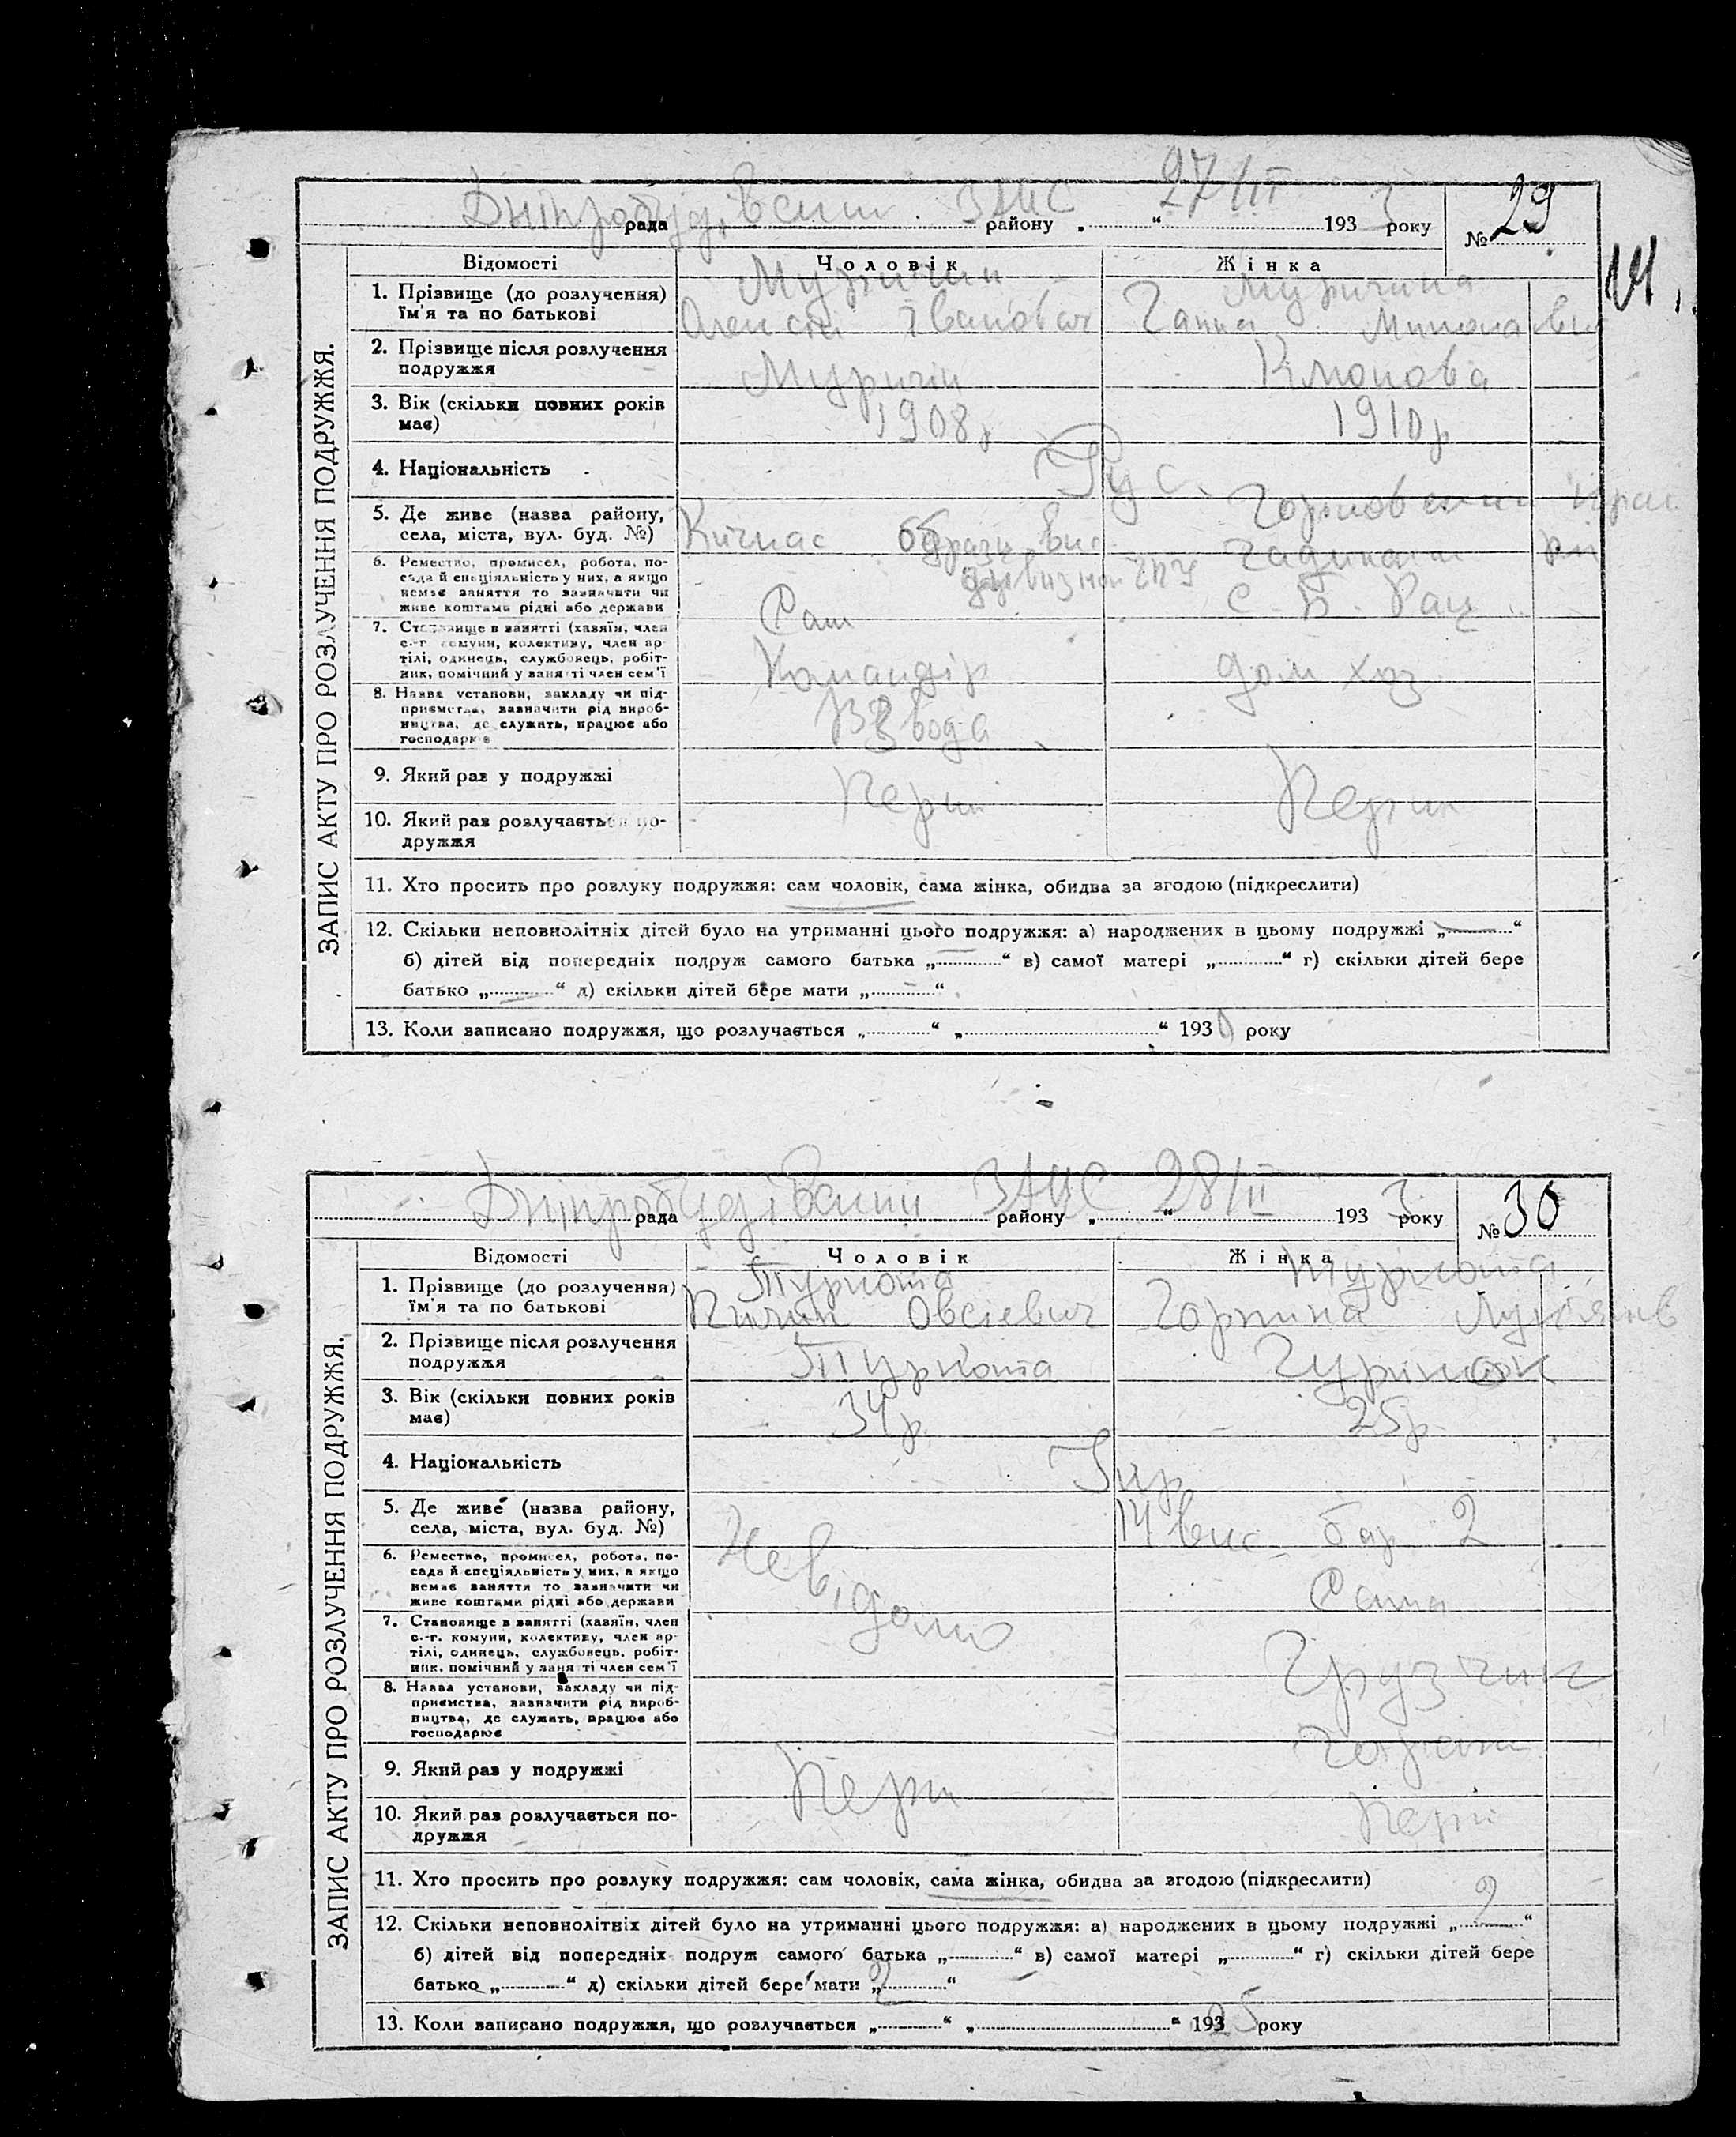 Дніпробудівський ЗАГС 27/ІІ
рада района „ “ 1933 року № 29
14
ЗАПИС АКТУ ПРО РОЗЛУЧЕННЯ ПОДРУЖЖЯ.
Відомості Чоловік Жінка
1. Прізвище (до розлучення) їм'я та по батькові
Іванович Ганна
2. Прізвище після розлучення подружжя
3. Вік (скільки повних років має) 1908р 1910р
4. Національність Рус.
5. Де живе (назва району, села, міста, вул. буд. №)
6. Ремество, промисел, робота, по-
сада й спеціяльність у них, а якщо
немає заняття то зазначити чи
живе коштами рідні або держави
Сам
7. Становище в занятті (хазяїн, член
с.-г. комуни, колективу, член ар-
тілі, одинець, службовець, робіт-
ник, помічний у занятті член сем'ї
Командір дом хоз
8. Назва установи, закладу чи під-
приємства, зазначити рід вироб-
ництва, де служить, працює або
господарює
Взвода
9. Який раз у подружжі
Перш Перш
10. Який раз розлучається по-
дружжя
11. Хто просить про розлуку подружжя: сам чоловік, сама жінка, обидва за згодою (підкреслити)
12. Скільки неповнолітніх дітей було на утриманні цього подружжя: а) народжених в цьому подружжі „—“
б) дітей від попередніх подруж самого батька „ “ в) самої матері „ “ г) скільки дітей бере
батько „—“ д) скільки дітей бере мати „—“
13. Коли записано подружжя, що розлучається „ “ „ “ 1930 року
Дніпробудівський ЗАГС 28/ІІ
рада району „ “ 1933 року № 30
ЗАПИС АКТУ ПРО РОЗЛУЧЕННЯ ПОДРУЖЖЯ.
Відомості Чоловік Жінка
Туркота Туркота
1. Прізвище (до розлучення) їм'я та по батькові
Овсієвич Горпина
2. Прізвище після розлучення подружжя
Туркота
3. Вік (скільки повних років має) 34р. 25р.
4. Національність Укр
5. Де живе (назва району, села, міста, вул. буд. №)
Невідомо 14 вис. бар. 2
6. Ремество, промисел, робота, по-
сада й спеціяльність у них, а якщо
немає заняття то зазначити чи
живе коштами рідні або держави
Сама
7. Становище в занятті (хазяїн, член
с.-г. комуни, колективу, член ар-
тілі, одинець, службовець, робіт-
ник, помічний у занятті член сем'ї
Грузчик
8. Назва установи, закладу чи під-
приємства, зазначити рід вироб-
ництва, де служить, працює або
господарює
9. Який раз у подружжі
Перш Перш
10. Який раз розлучається по-
дружжя
11. Хто просить про розлуку подружжя: сам чоловік, сама жінка, обидва за згодою (підкреслити)
12. Скільки неповнолітніх дітей було на утриманні цього подружжя: а) народжених в цьому подружжі „2“
б) дітей від попередніх подруж самого батька „ “ в) самої матері „ “ г) скільки дітей бере
батько „ “ д) скільки дітей бере мати „2“
13. Коли записано подружжя, що розлучається „ “ „ “ 1925 року